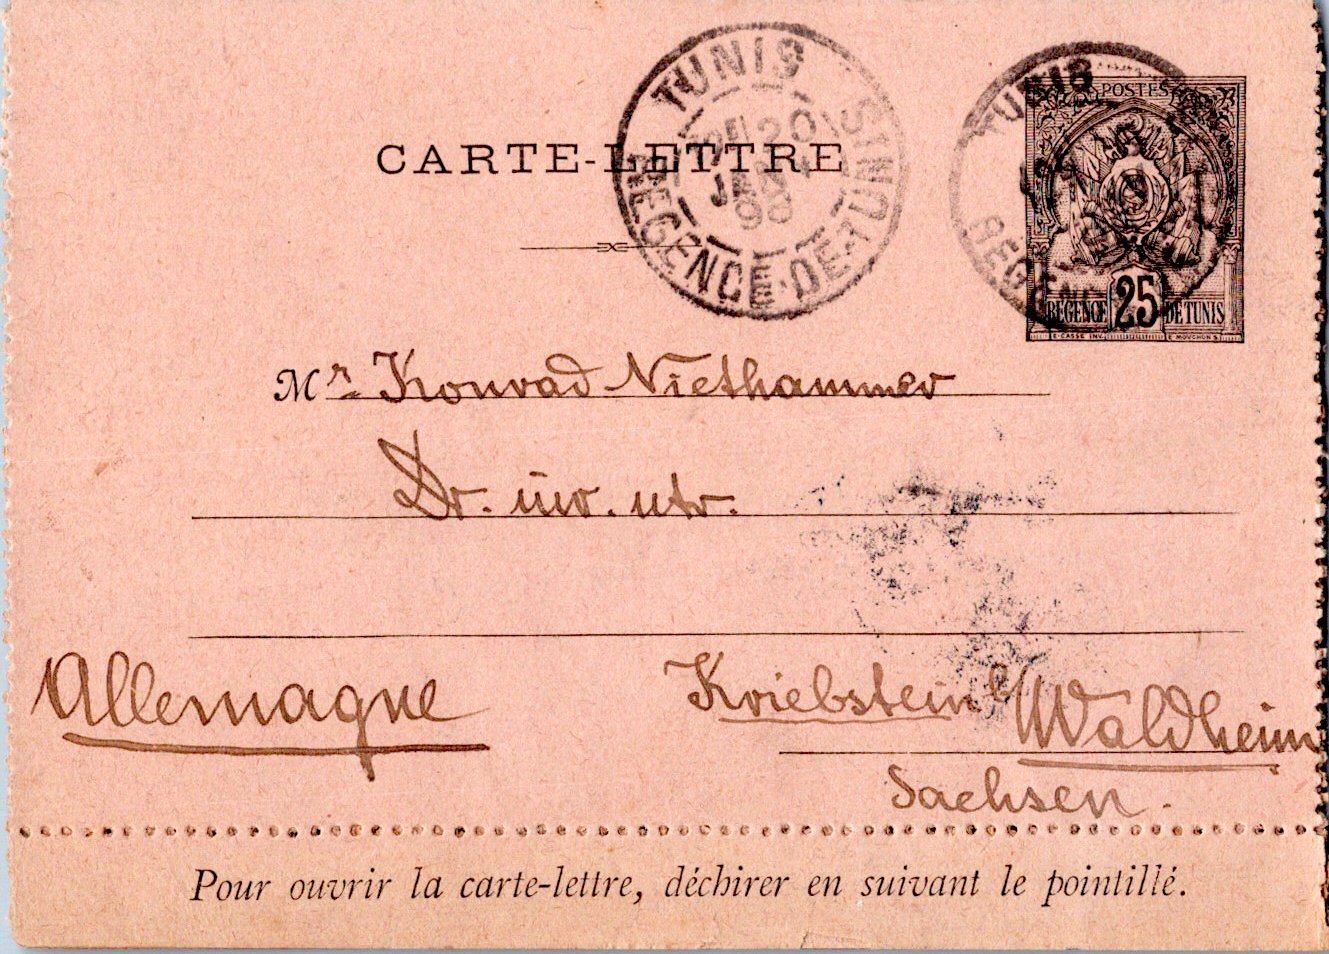 TUNIS
20
JANV
98
REGENCE-DE-TUNIS
TUNIS
POSTES
REGENCE 25 DE TUNIS
E·CASSE INV. E MOUCHON S.
CARTE-LETTRE
Mr. Konrad Niethammer
Dr. iur. utr.
Allemagne
Kriebstein b/ Waldheim
Sachsen.
Pour ouvrir la carte-lettre, déchirer en suivant le pointillé.